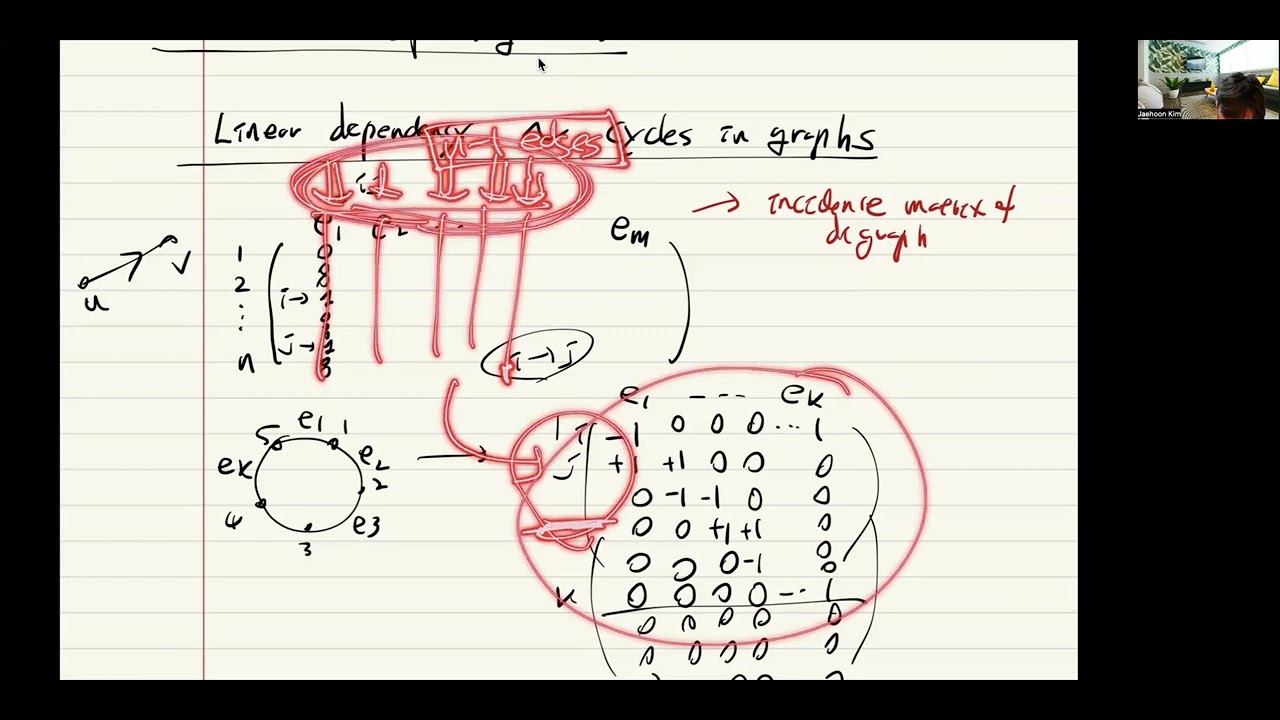 Linear dependency Cycles in graphs
n-1 edges
→ incidence matrix of
digraph
e1 e2 ... em
1 0
2 0
u v
i→ 1
j→ 1
n
i→j
e1 --- ek
i -1 0 0 0 ... 1
j +1 +1 0 0 0
0 -1 -1 0 0
0 0 +1 +1 0
0 0 0 -1 0
k 0 0 0 0 -.. 1
0 0 0 0 0
0 0 0 0 0
5 e1 1
ek e2
2
4 e3
3
Jaehoon Kim